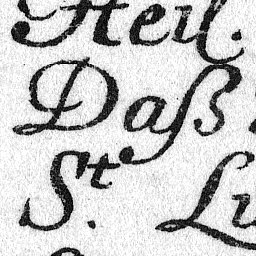 Heil.
Daß
St. Lu